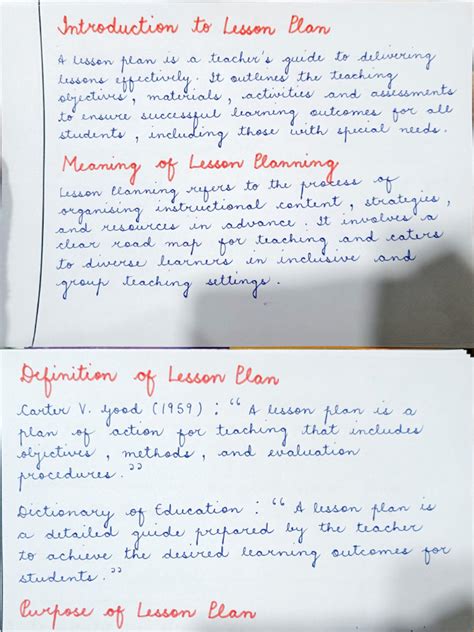 Introduction to Lesson Plan
A lesson plan is a teacher's guide to delivering
lessons effectively. It outlines the teaching
objectives, materials, activities and assessments
to ensure successful learning outcomes for all
students, including those with special needs.
Meaning of Lesson Planning
Lesson Planning refers to the process of
organising instructional content, strategies,
and resources in advance. It involves a
clear road map for teaching and caters
to diverse learners in inclusive and
group teaching settings.
Definition of Lesson Plan
Carter V. Good (1959) : "A lesson plan is a
plan of action for teaching that includes
objectives, methods, and evaluation
procedures."
Dictionary of Education : "A lesson plan is
a detailed guide prepared by the teacher
to achieve the desired learning outcomes for
students."
Purpose of Lesson Plan